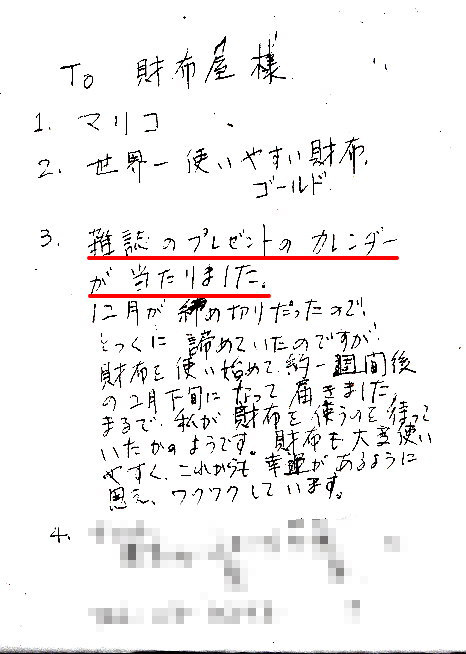 To 財布屋様
1. マリコ
2. 世界一使いやすい財布、
ゴールド
3. 雑誌のプレゼントのカレンダー
が当たりました。
12月が締め切りだったので、
とっくに諦めていたのですが
財布を使い始めて約一週間後
の2月下旬になって届きました。
まるで、私が財布を使うのを待って
いたかのようです。財布も大変使い
やすく、これからも幸運があるように
思え、ワクワクしています。
4.